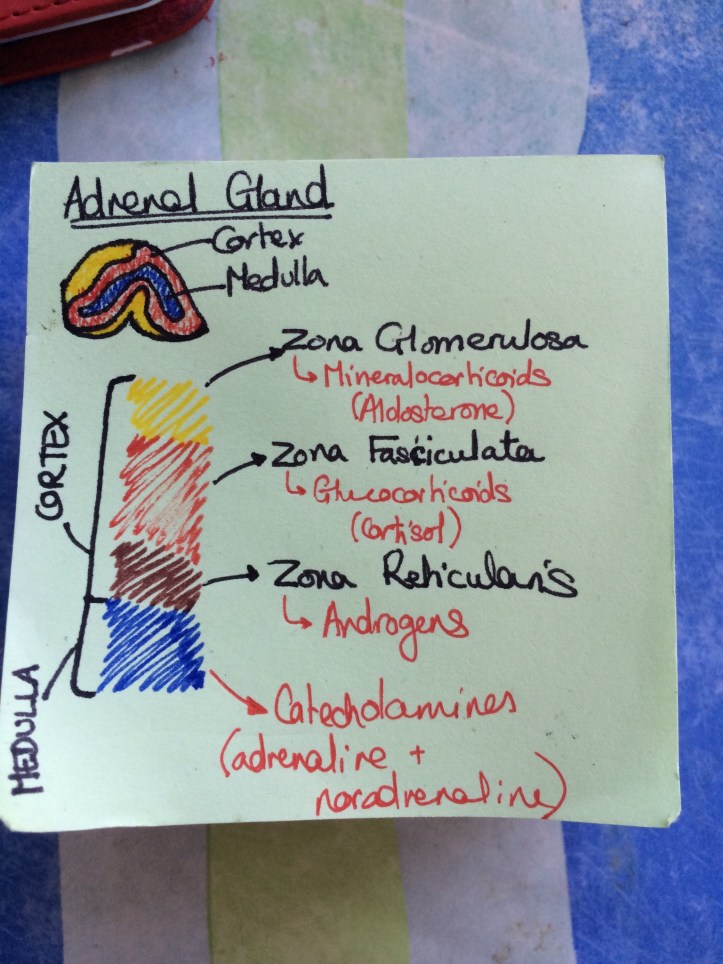 Adrenal Gland
Cortex
Medulla
Zona Glomerulosa
Mineralocorticoids
(Aldosterone)
CORTEX
Zona Fasciculata
Glucocorticoids
(Cortisol)
Zona Reticularis
Androgens
MEDULLA
Catecholamines
(adrenaline +
noradrenaline)